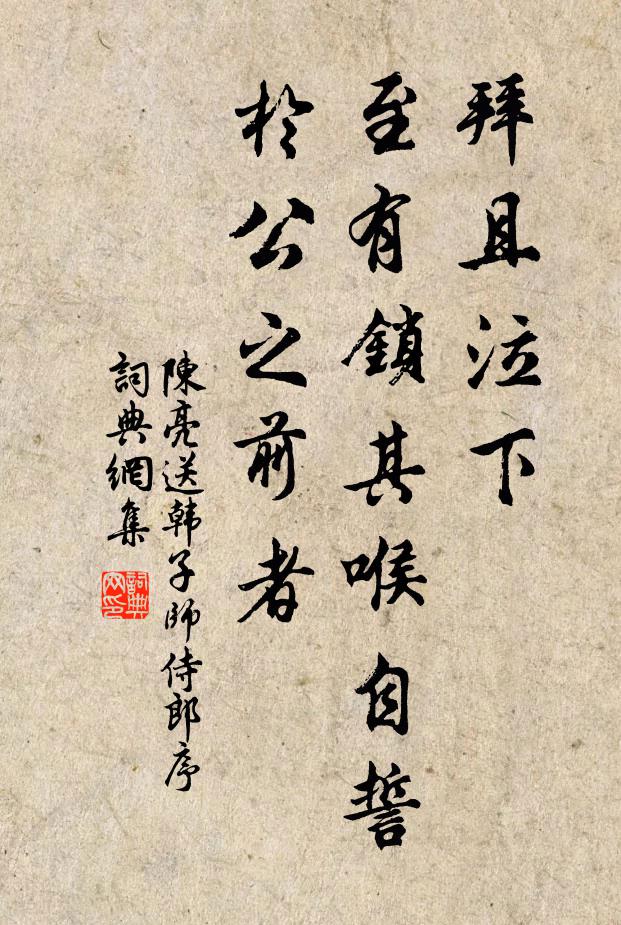 拜且泣下
至有鎖其喉自誓
於公之前者
陳亮送韩子師侍郎序
詞典網集
詞典网印